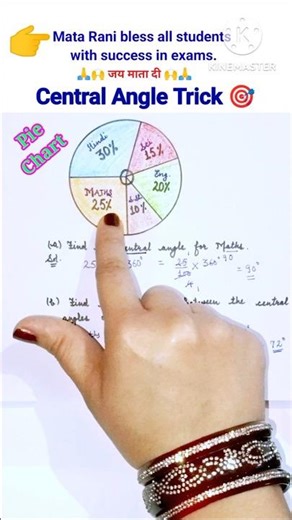 Mata Rani bless all students
with success in exams.
KINEMASTER
जय माता दी
Central Angle Trick
Pie
Chart
Hindi
30%
15%
Eng.
20%
MATHS
25%
10%
(a) Find central angle for Maths.
Sol. 25 360° = 25/100 × 360° 90 = 90°
4
(b) Find between the central
angles
72°